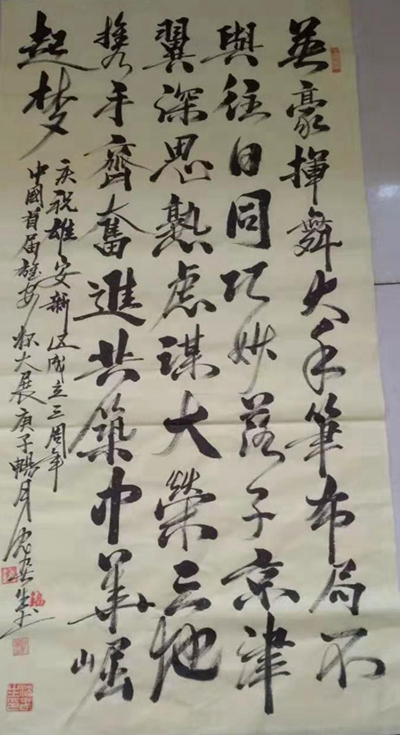 英豪揮舞大手筆布局不
與往日同巧妙落子京津
翼深思熟虑謀大榮三地
携手齊奮進共築中華崛
起梦
庆祝雄安新区成立三周年
中國首届雄安杯大展庚子暢月